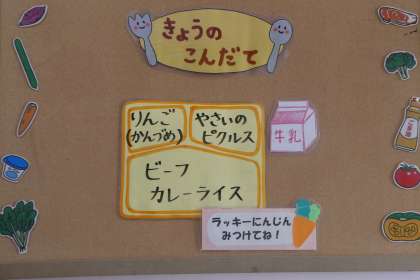 きょうの
こんだて
りんご
(かんづめ)
やさいの
ピクルス
牛乳
ビーフ
カレーライス
ラッキーにんじん
みつけてね!